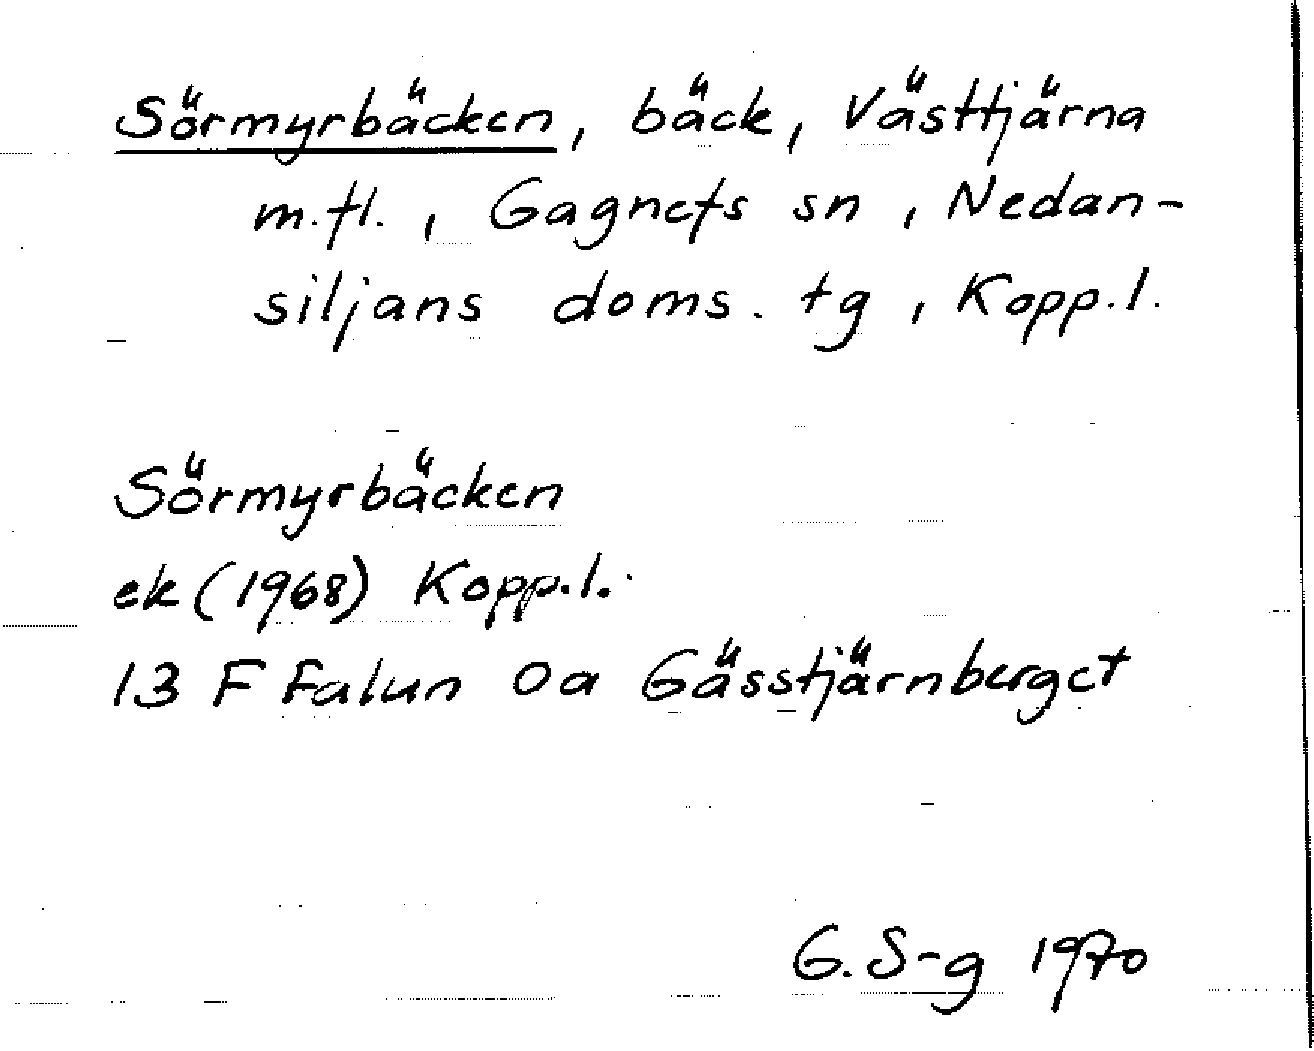 Sörmyrbäcken, bäck, Västtjärna
m.fl., Gagnefs sn, Nedan-
siljans doms. tg, Kopp.l.
Sörmyrbäcken
ek (1968) Kopp.l.
13 F Falun 0a Gässtjärnberget
G. S-g 1970